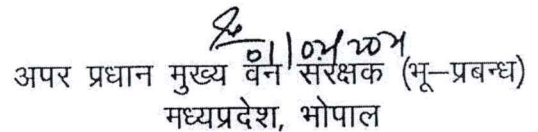 अपर प्रधान मुख्य वन संरक्षक (भू-प्रबन्ध)
मध्यप्रदेश, भोपाल